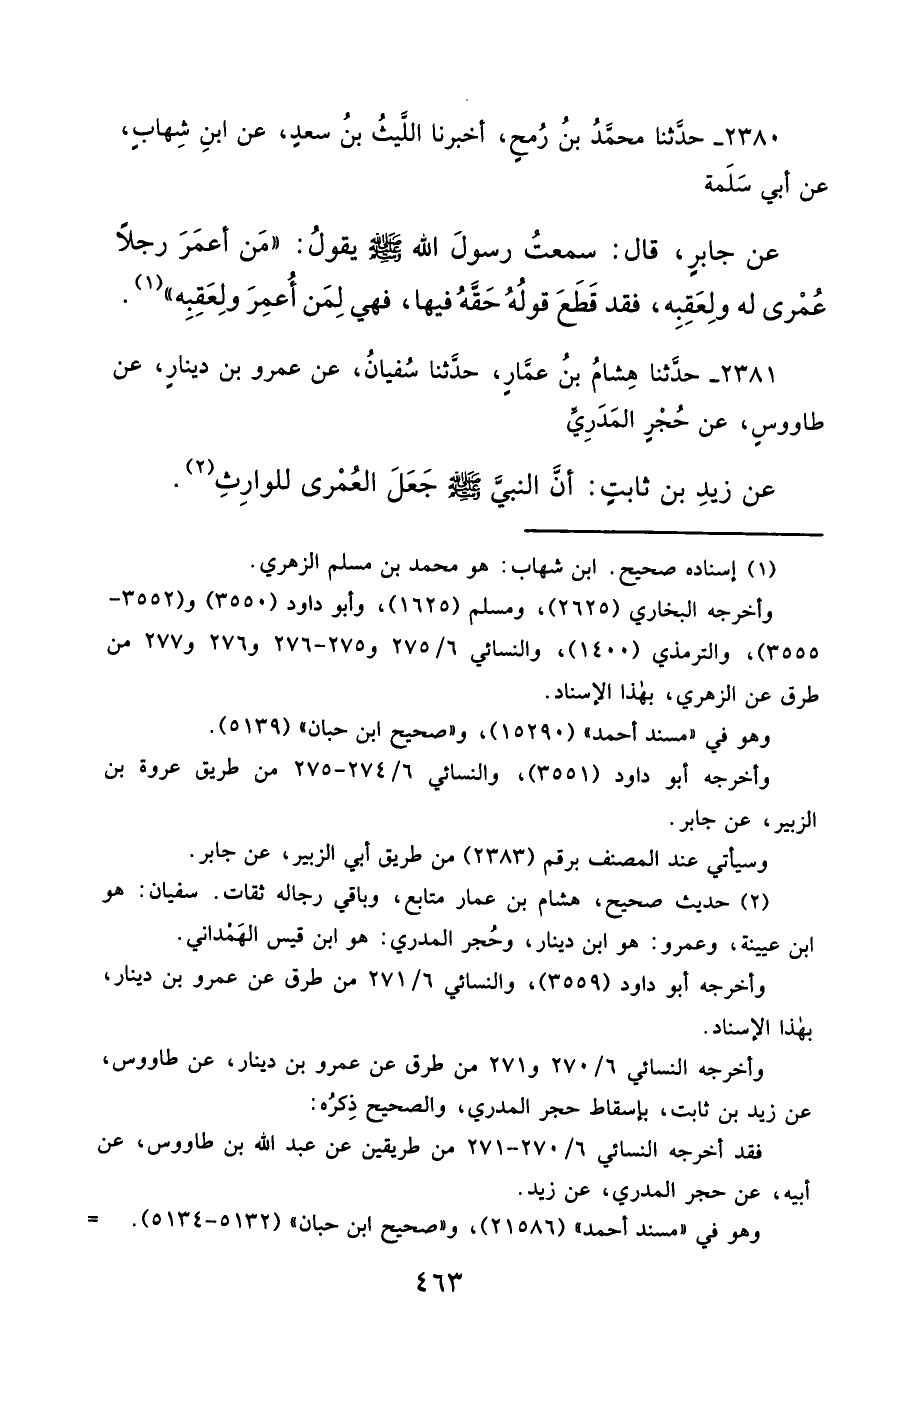 ٢٣٨٠ـ حدَّثنا محمَّدُ بنُ رُمحٍ، أخبرنا اللَّيثُ بنُ سعدٍ، عن ابنِ شِهابٍ،
عن أبي سَلَمة
عن جابرٍ، قال: سمعتُ رسولَ الله ﷺ يقولُ: «مَن أعمَرَ رجلاً
عُمْرى له ولِعَقِبِه، فقد قَطَعَ قولُهُ حَقَّهُ فيها، فهي لِمَن أُعمِرَ ولِعَقِبِه»(١).
٢٣٨١ـ حدَّثنا هِشامُ بنُ عمَّارٍ، حدَّثنا سُفيانُ، عن عمرو بن دينارٍ، عن
طاووسٍ، عن حُجْرٍ المَدَرِيِّ
عن زيدِ بن ثابتٍ: أنَّ النبيَّ ﷺ جَعَلَ العُمْرى للوارِثِ(٢).
(١) إسناده صحيح. ابن شهاب: هو محمد بن مسلم الزهري.
وأخرجه البخاري (٢٦٢٥)، ومسلم (١٦٢٥)، وأبو داود (٣٥٥٠) و(٣٥٥٢-
٣٥٥٥)، والترمذي (١٤٠٠)، والنسائي ٦/ ٢٧٥ و٢٧٥-٢٧٦ و٢٧٦ و٢٧٧ من
طرق عن الزهري، بهٰذا الإسناد.
وهو في «مسند أحمد» (١٥٢٩٠)، و«صحيح ابن حبان» (٥١٣٩).
وأخرجه أبو داود (٣٥٥١)، والنسائي ٦/ ٢٧٤-٢٧٥ من طريق عروة بن
الزبير، عن جابر.
وسيأتي عند المصنف برقم (٢٣٨٣) من طريق أبي الزبير، عن جابر.
(٢) حديث صحيح، هشام بن عمار متابع، وباقي رجاله ثقات. سفيان: هو
ابن عيينة، وعمرو: هو ابن دينار، وحُجر المدري: هو ابن قيس الهَمْداني.
وأخرجه أبو داود (٣٥٥٩)، والنسائي ٦/ ٢٧١ من طرق عن عمرو بن دينار،
بهٰذا الإسناد.
وأخرجه النسائي ٦/ ٢٧٠ و٢٧١ من طرق عن عمرو بن دينار، عن طاووس،
عن زيد بن ثابت، بإسقاط حجر المدري، والصحيح ذِكرُه:
فقد أخرجه النسائي ٦/ ٢٧٠-٢٧١ من طريقين عن عبد الله بن طاووس، عن
أبيه، عن حجر المدري، عن زيد.
وهو في «مسند أحمد» (٢١٥٨٦)، و«صحيح ابن حبان» (٥١٣٢-٥١٣٤). =
٤٦٣